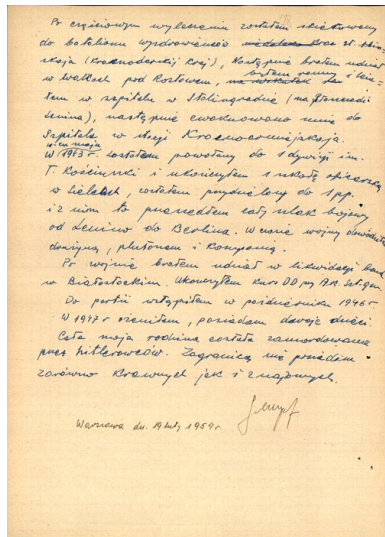 Po częściowym wyleczeniu zostałem skierowany
do batalionu wyzdrowieńców st.
(Krasnodarski Kraj), Następnie brałem udział
w walkach pod Rostowem, byłem ranny i
w szpitalu w Stalingradzie (na
Lenina), następnie ewakuowano mnie do
Szpitala w stacji Krasnoarmiejskaja.
w m-cu maju
W 1943 r. zostałem powołany do 1 dywizji im.
T. Kościuszki i ukończyłem szkołę oficerską
w Sielcach, zostałem przydzielony do 1 pp.
i z nim to przeszedłem cały szlak bojowy
od Lenino do Berlina. W czasie wojny dowodziłem
drużyną, plutonem i kompanią.
Po wojnie brałem udział w likwidacji band
w Białostockim. Ukończyłem Kurs DO przy Ak. Szt. Gen.
Do partii wstąpiłem w październiku 1946 r.
W 1947 r ożeniłem, posiadam dwoje dzieci.
Cała moja rodzina została zamordowana
przez hitlerowców. Zagranicą nie posiadam
zarówno krewnych jak i znajomych.
Warszawa dn. 19 luty 1959 r.